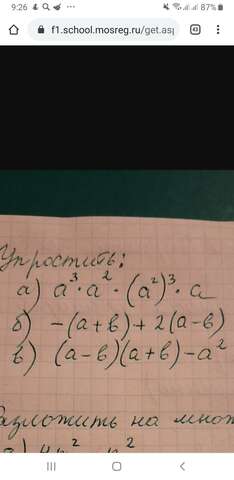 9:26 87%
f1.school.mosreg.ru/get.asp
Упростить:
а) a³·a²·(a²)³·a
б) -(a+b)+2(a-b)
в) (a-b)(a+b)-a²
Разложить на множ